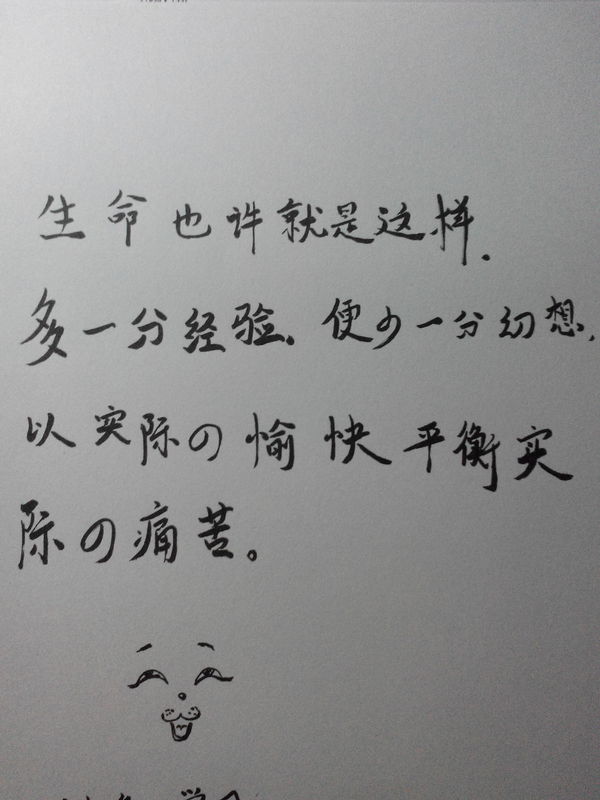 生命也许就是这样.
多一分经验.便少一分幻想.
以实际の愉快平衡实
际の痛苦。